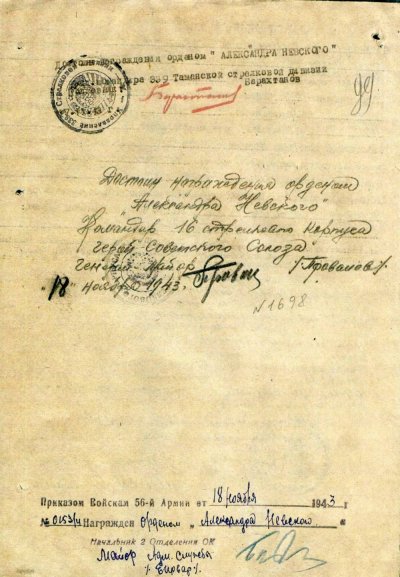 Достоин награждения орденом "АЛЕКСАНДРА НЕВСКОГО"
339 Таманской стрелковой дивизии
Барахтанов
99
Достоин награждения орденом
Александра Невского"
Командир 16 стрелкового корпуса
герой Советского Союза
генерал майор /Провалов/
"18" ноября 1943г.
N 1698
Приказом Войскам 56-й Армии от 18 ноября 1943 г
№ 0153/н Награжден Орденом „Александра Невского"
Начальник 2 Отделения ОК
Майор Адм. службы